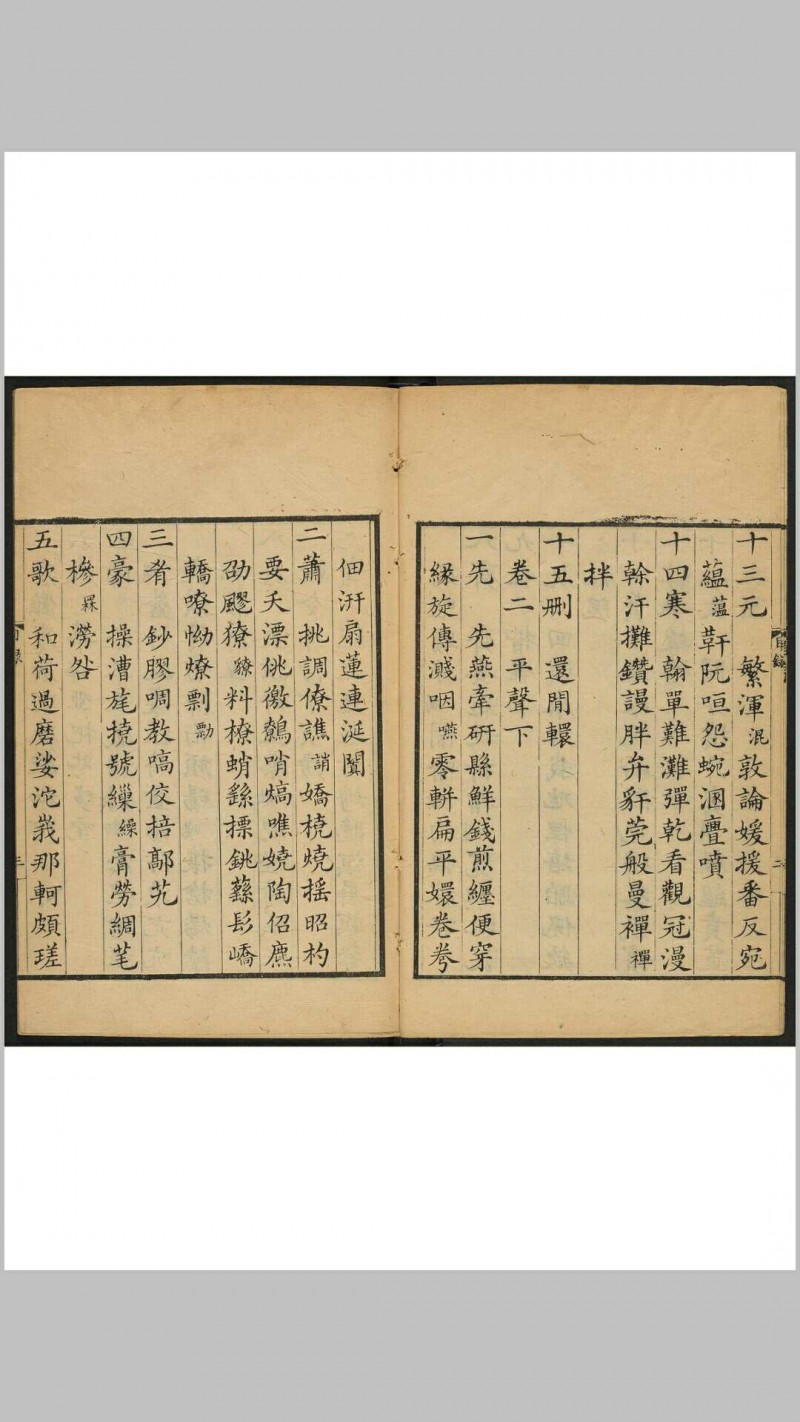 十三元 繁渾混敦論媛援番反宛
蘊薀靬阮咺怨蜿涃亹噴
十四寒 翰單難灘彈乾看觀冠漫
榦汗攤鑽謾胖弁豻莞般曼襌禪
拌
十五刪 還閒轘
卷二 平聲下
一先 先燕牽研縣鮮錢煎纏便穿
緣旋傳濺咽嚥零軿扁平嬛卷弮
佃汧扇蓮連涎闐
二蕭 挑調僚譙誚嬌橈燒搖昭杓
要夭漂佻徼鷯哨熇噍嬈陶佋麃
劭飂獠獠料橑蛸繇摽銚蘨髟嶠
轎嘹怮燎剽勡
三肴 鈔膠啁教嗃佼掊鄗艽
四豪 操漕旄撓號繅繰膏勞綢芼
橾槑澇咎
五歌 和荷過磨娑沱峩那軻頗瑳
目錄
二
三